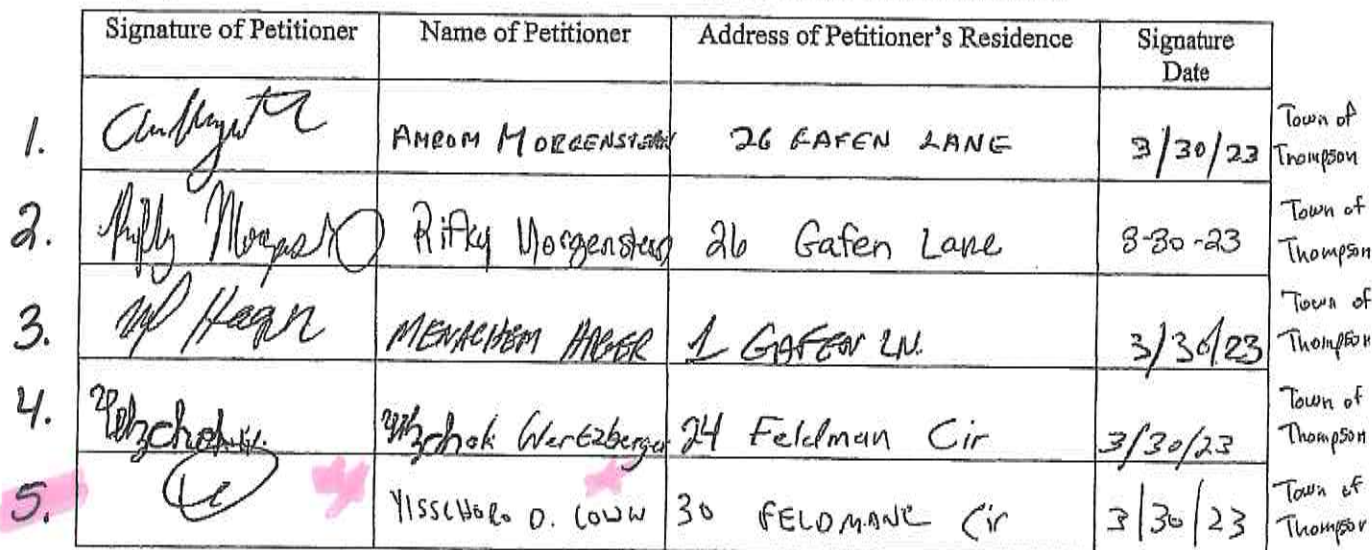 Signature of Petitioner Name of Petitioner Address of Petitioner's Residence Signature Date
1. AMROM MORGENSTERN 26 GAFEN LANE 3/30/23 Town of Thompson
2. Rifky Morgenstern 26 Gafen Lane 3-30-23 Town of Thompson
3. MENACHEM HAGER 1 GAFEN LN. 3/30/23 Town of Thompson
4. Yitzchok Wertzberger 24 Feldman Cir 3/30/23 Town of Thompson
5. D. 30 FELDMAN Cir 3/30/23 Town of Thompson